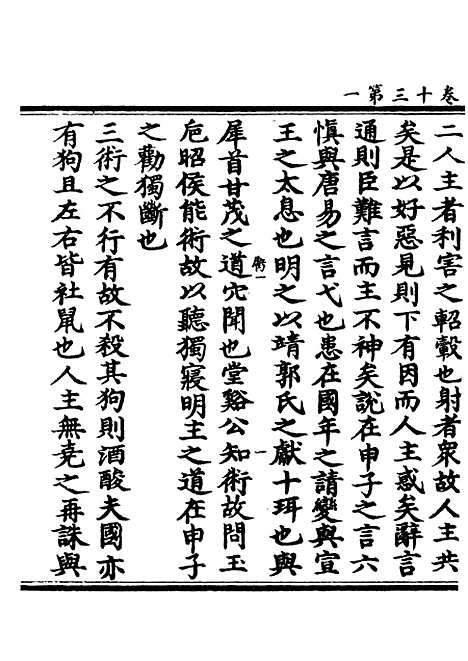 卷十三第一
二人主者利害之軺轂也射者衆故人主共
矣是以好惡見則下有因而人主惑矣辭言
通則臣難言而主不神矣說在申子之言六
慎與唐易之言弋也患在國年之請變與宣
王之太息也明之以靖郭氏之獻十珥也與
犀首甘茂之道穴聞也堂谿公知術故問玉
巵昭侯能術故以聽獨寢明主之道在申子
之勸獨斷也
三術之不行有故不殺其狗則酒酸夫國亦
有狗且左右皆社鼠也人主無堯之再誅與